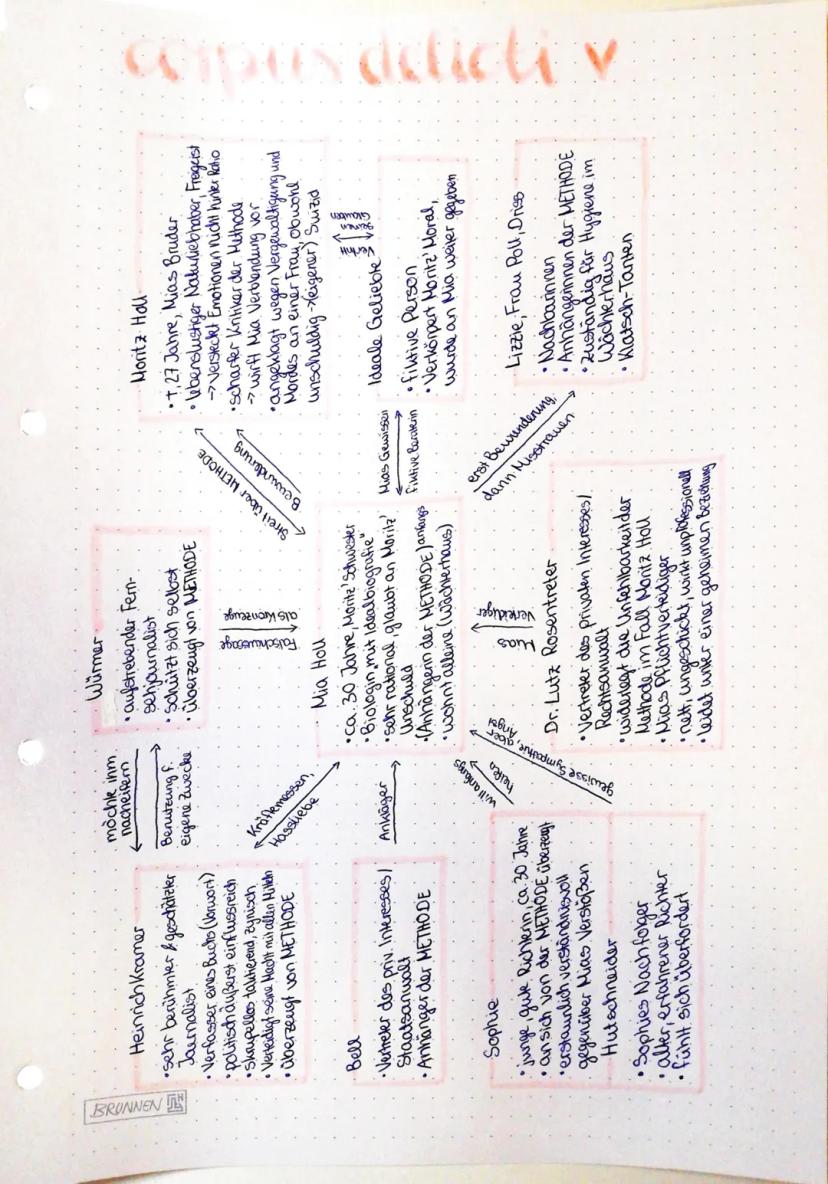 corpus delicti
BRUNNEN
Heinrich Kramer
• sehr berühmter & geschätzter
Journalist
• Verfasser eines Buchs (Vorwort)
• politisch äußerst einflussreich
• skrupellos taktierend, zynisch
• Verteidigt seine Macht mit allen Mitteln
• überzeugt von METHODE
möchte ihm
nacheifern
Benutzung f.
eigene Zwecke
Würmer
• aufstrebender Fern-
sehjournalist
• schützt sich selbst
• überzeugt von METHODE
Moritz Holl
• †, 27 Jahre, Mias Bruder
• lebenslustiger Naturliebhaber, Freigeist
→ versteckt Emotionen nicht hinter Ratio
• scharfer Kritiker der Methode
→ wirft Mia Verblendung vor
• angeklagt wegen Vergewaltigung und
Mordes an einer Frau, obwohl
unschuldig → (eigener) Suizid
Streit über METHODE
Bewunderung
Falschaussage
als Kronzeuge
Kräftemessen,
Hassliebe
Bell
• Vertreter des priv. Interesses/
Staatsanwalt
• Anhänger der METHODE
Ankläger
Mia Holl
• ca. 30 Jahre, Moritz' Schwester
• Biologin mit "Idealbiografie"
• sehr rational, glaubt an Moritz'
Unschuld
• (Anhängerin der METHODE) anfangs
• wohnt alleine (Wächterhaus)
Mias Gewissen
fiktive Beraterin
Ideale Geliebte
• fiktive Person
• Verkörpert Moritz' Moral,
wurde an Mia weiter gegeben
Vertritt
seinen
Glauben
Sophie
• junge, gute Richterin, ca. 30 Jahre
• an sich von der METHODE überzeugt
• erstaunlich verständnisvoll
gegenüber Mias Verstößen
will anfangs
helfen
gewisse Sympathie, aber
Angst
Hutschneider
• Sophies Nachfolger
• alter, erfahrener Richter
• fühlt sich überfordert
Mias
Verteidiger
Dr. Lutz Rosentreter
• Vertreter des privaten Interesses/
Rechtsanwalt
• widerlegt die Unfehlbarkeit der
Methode im Fall Moritz Holl
• Mias Pflichtverteidiger
• nett, ungeschickt, wirkt unprofessionell
• leidet unter einer geheimen Beziehung
erst Bewunderung,
dann Misstrauen
Lizzie, Frau Poll, Driss
• Nachbarinnen
• Anhängerinnen der METHODE
• zuständig für Hygiene im
Wächterhaus
• Klatsch-Tanten